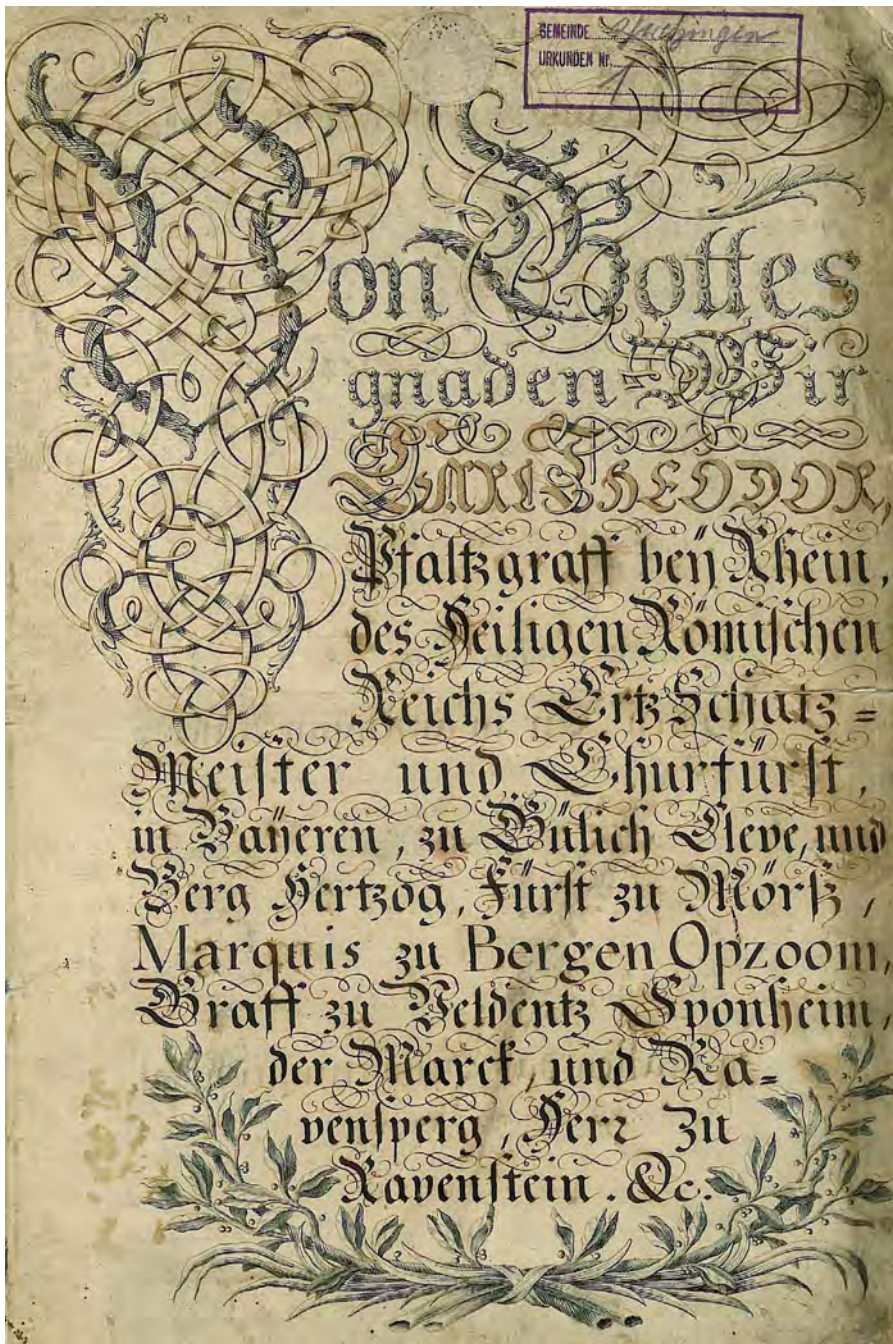 GEMEINDE
URKUNDEN Nr. 1
Von Gottes
gnaden Wir
CARL THEODOR,
Pfaltzgraff beÿ Rhein,
des Heiligen Römischen
Reichs Ertz Schatz =
Meister und Churfürst,
in Baÿeren, zu Gülich Cleve, und
Berg Hertzog, Fürst zu Mörß,
Marquis zu Bergen Opzoom,
Graff zu Veldentz Sponheim,
der Marck, und Ra=
vensperg, Herr zu
Ravenstein. &c.